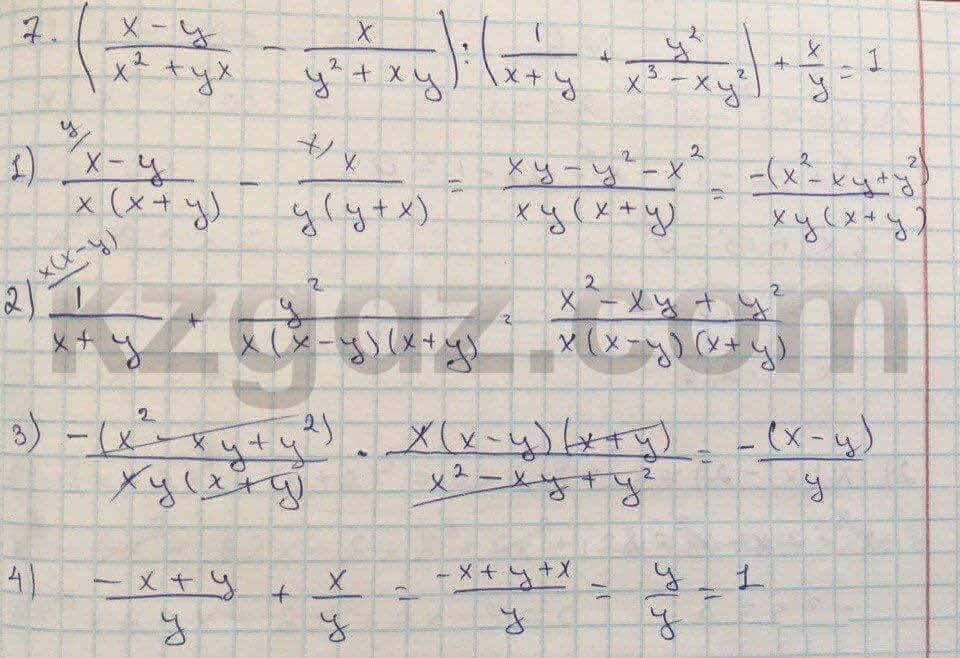 7. ( (x - y)/(x² + yx) - x/(y² + xy) ) : ( 1/(x + y) + y²/(x³ - xy²) ) + x/y = 1
1) y/ (x - y)/(x(x + y)) - x/ x/(y(y + x)) = (xy - y² - x²)/(xy(x + y)) = -(x² - xy + y²)/(xy(x + y))
2) x(x - y)/ 1/(x + y) + y²/(x(x - y)(x + y)) = (x² - xy + y²)/(x(x - y)(x + y))
kzgdz.com
3) -(x² - xy + y²)/(xy(x + y)) · x(x - y)(x + y)/(x² - xy + y²) = -(x - y)/y
4) (-x + y)/y + x/y = (-x + y + x)/y = y/y = 1